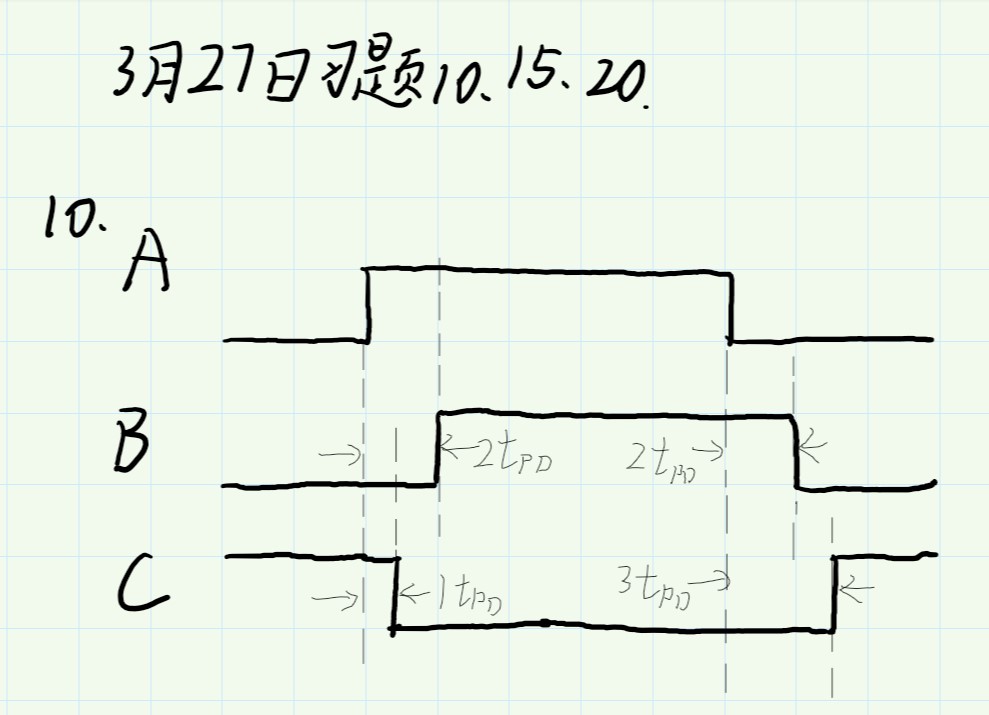 3月27日习题10、15、20.
10.
A
B
2tPD 2tPD
C
1tPD 3tPD